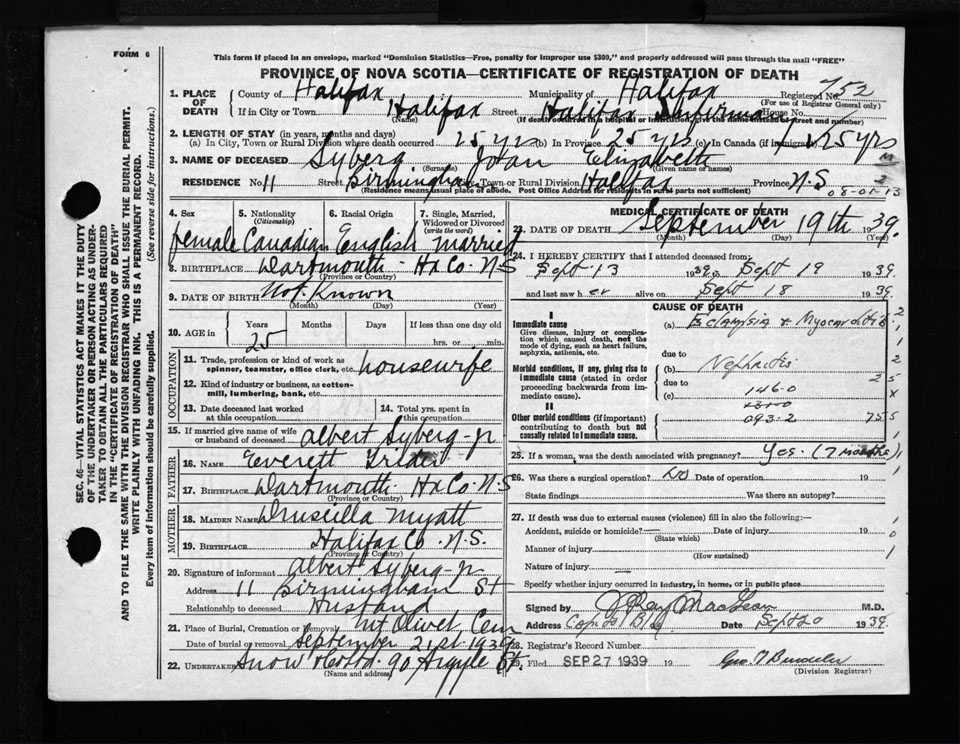 FORM 6
This form if placed in an envelope, marked "Dominion Statistics—Free, penalty for improper use $300," and properly addressed will pass through the mail "FREE"
PROVINCE OF NOVA SCOTIA—CERTIFICATE OF REGISTRATION OF DEATH
1. PLACE OF DEATH County of Halifax Municipality of Halifax Registered No. 752
(For use of Registrar General only)
If in City or Town Halifax Street Halifax Infirmary House No.
(Name) (If death occurred in a hospital or institution, give its name instead of street and number)
2. LENGTH OF STAY (in years, months and days)
(a) In City, Town or Rural Division where death occurred 25 yrs (b) In Province 25 yrs (c) In Canada (if immigrant) 25 yrs
3. NAME OF DECEASED Syberg Joan Elizabeth
(Surname) (Given name or names)
RESIDENCE No. 11 Street Birmingham City, Town or Rural Division Halifax Province N.S
(Residence means usual place of abode. Post Office Address for residents in rural parts not sufficient) 08-01-13
4. Sex female
5. Nationality (Citizenship) Canadian
6. Racial Origin English
7. Single, Married, Widowed or Divorced (write the word) married
8. BIRTHPLACE Dartmouth - Hx Co. N.S
(Province or Country)
9. DATE OF BIRTH Not Known
(Month) (Day) (Year)
10. AGE in Years Months Days If less than one day old
25 hrs. or min.
OCCUPATION
11. Trade, profession or kind of work as spinner, teamster, office clerk, etc. housewife
12. Kind of industry or business, as cotton-mill, lumbering, bank, etc.
13. Date deceased last worked at this occupation
14. Total yrs. spent in this occupation
15. If married give name of wife or husband of deceased Albert Syberg-jr
FATHER
16. NAME Everett
17. BIRTHPLACE Dartmouth. Hx Co. N.S
(Province or Country)
MOTHER
18. MAIDEN NAME Druscilla Myatt
19. BIRTHPLACE Halifax Co. N.S.
(Province or Country)
20. Signature of informant Albert Syberg-jr
Address 11 Birmingham St
Relationship to deceased Husband
21. Place of Burial, Cremation or Removal Mt Olivet Cem
Date of burial or removal September 21st 1939
22. UNDERTAKER Snow & Co Ltd. 90 Argyle St.
(Name and address)
MEDICAL CERTIFICATE OF DEATH
23. DATE OF DEATH September 19th 1939.
(Month) (Day) (Year)
24. I HEREBY CERTIFY that I attended deceased from:
Sept 13 1939, to Sept 19 1939.
and last saw her alive on Sept 18 1939.
CAUSE OF DEATH
I
Immediate cause
Give disease, injury or complication which caused death, not the mode of dying, such as heart failure, asphyxia, asthenia, etc.
(a) Eclampsia & Myocarditis
due to
Morbid conditions, if any, giving rise to immediate cause (stated in order proceeding backwards from immediate cause).
(b) Nephritis
due to
(c) 146.0
093.2
II
Other morbid conditions (if important) contributing to death but not causally related to immediate cause.
25. If a woman, was the death associated with pregnancy? Yes. (7 months)
26. Was there a surgical operation? No Date of operation 19
State findings Was there an autopsy?
27. If death was due to external causes (violence) fill in also the following:—
Accident, suicide or homicide? — Date of injury 19
(State which)
Manner of injury
(How sustained)
Nature of injury —
Specify whether injury occurred in industry, in home, or in public place
Signed by J Ray MacLean M.D.
Address Capitol Bldg Date Sept 20 1939.
28. Registrar's Record Number
29. Filed SEP 27 1939 19
(Division Registrar)
SEC. 46—VITAL STATISTICS ACT MAKES IT THE DUTY OF THE UNDERTAKER OR PERSON ACTING AS UNDERTAKER TO OBTAIN ALL THE PARTICULARS REQUIRED IN THE "CERTIFICATE OF REGISTRATION OF DEATH" AND TO FILE THE SAME WITH THE DIVISION REGISTRAR WHO SHALL ISSUE THE BURIAL PERMIT.
WRITE PLAINLY WITH UNFADING INK. THIS IS A PERMANENT RECORD.
Every item of information should be carefully supplied. (See reverse side for instructions.)